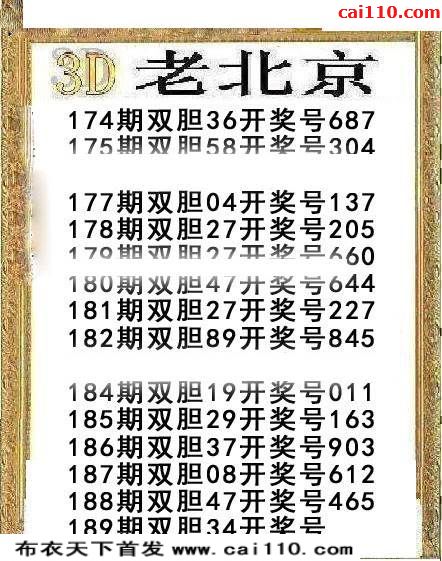 cai110.com
3D 老北京
174期双胆36开奖号687
175期双胆58开奖号304
177期双胆04开奖号137
178期双胆27开奖号205
179期双胆27开奖号660
180期双胆47开奖号644
181期双胆27开奖号227
182期双胆89开奖号845
184期双胆19开奖号011
185期双胆29开奖号163
186期双胆37开奖号903
187期双胆08开奖号612
188期双胆47开奖号465
189期双胆34开奖号
布衣天下首发 www.cai110.com